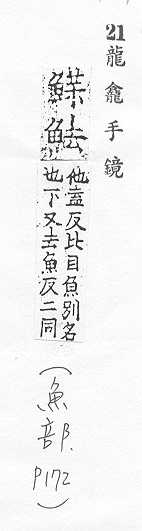 21 龍龕手鏡
鰈魼
他盍反比目魚別名
也下又去魚反二同
(魚部. P172)